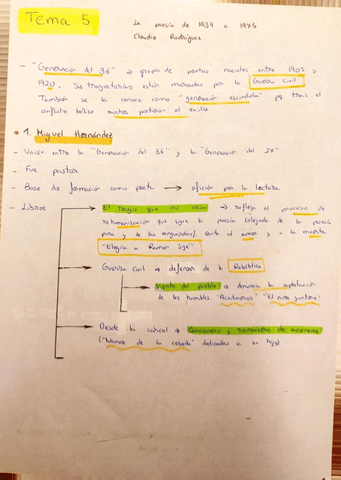 Tema 5
La poesía de 1939 a 1975
Claudia Rodríguez
- "Generación del 36" → grupo de poetas nacidos entre 1905 y
1920. Sus trayectorias están marcadas por la Guerra Civil.
También se la conoce como "generación escindida" pq tras el
conflicto bélico muchos partieron al exilio.
1. Miguel Hernández
- Unión entre la "Generación del 36" y la "Generación del 27"
- Fue pastor
- Base de formación como poeta → afición por la lectura
- Libros → El rayo que no cesa → refleja el proceso de
rehumanización que sigue la poesía (alejado de la poesía
pura y de las vanguardias). Canto al amor y a la muerte
"Elegía a Ramón Sijé"
→ Guerra Civil → defensor de la República
→ Viento del pueblo → denuncia la explotación
de los humildes. "Aceituneros" "El niño yuntero"
→ Desde la cárcel → Cancionero y romancero de ausencias
("Nanas de la cebolla" dedicadas a su hijo)